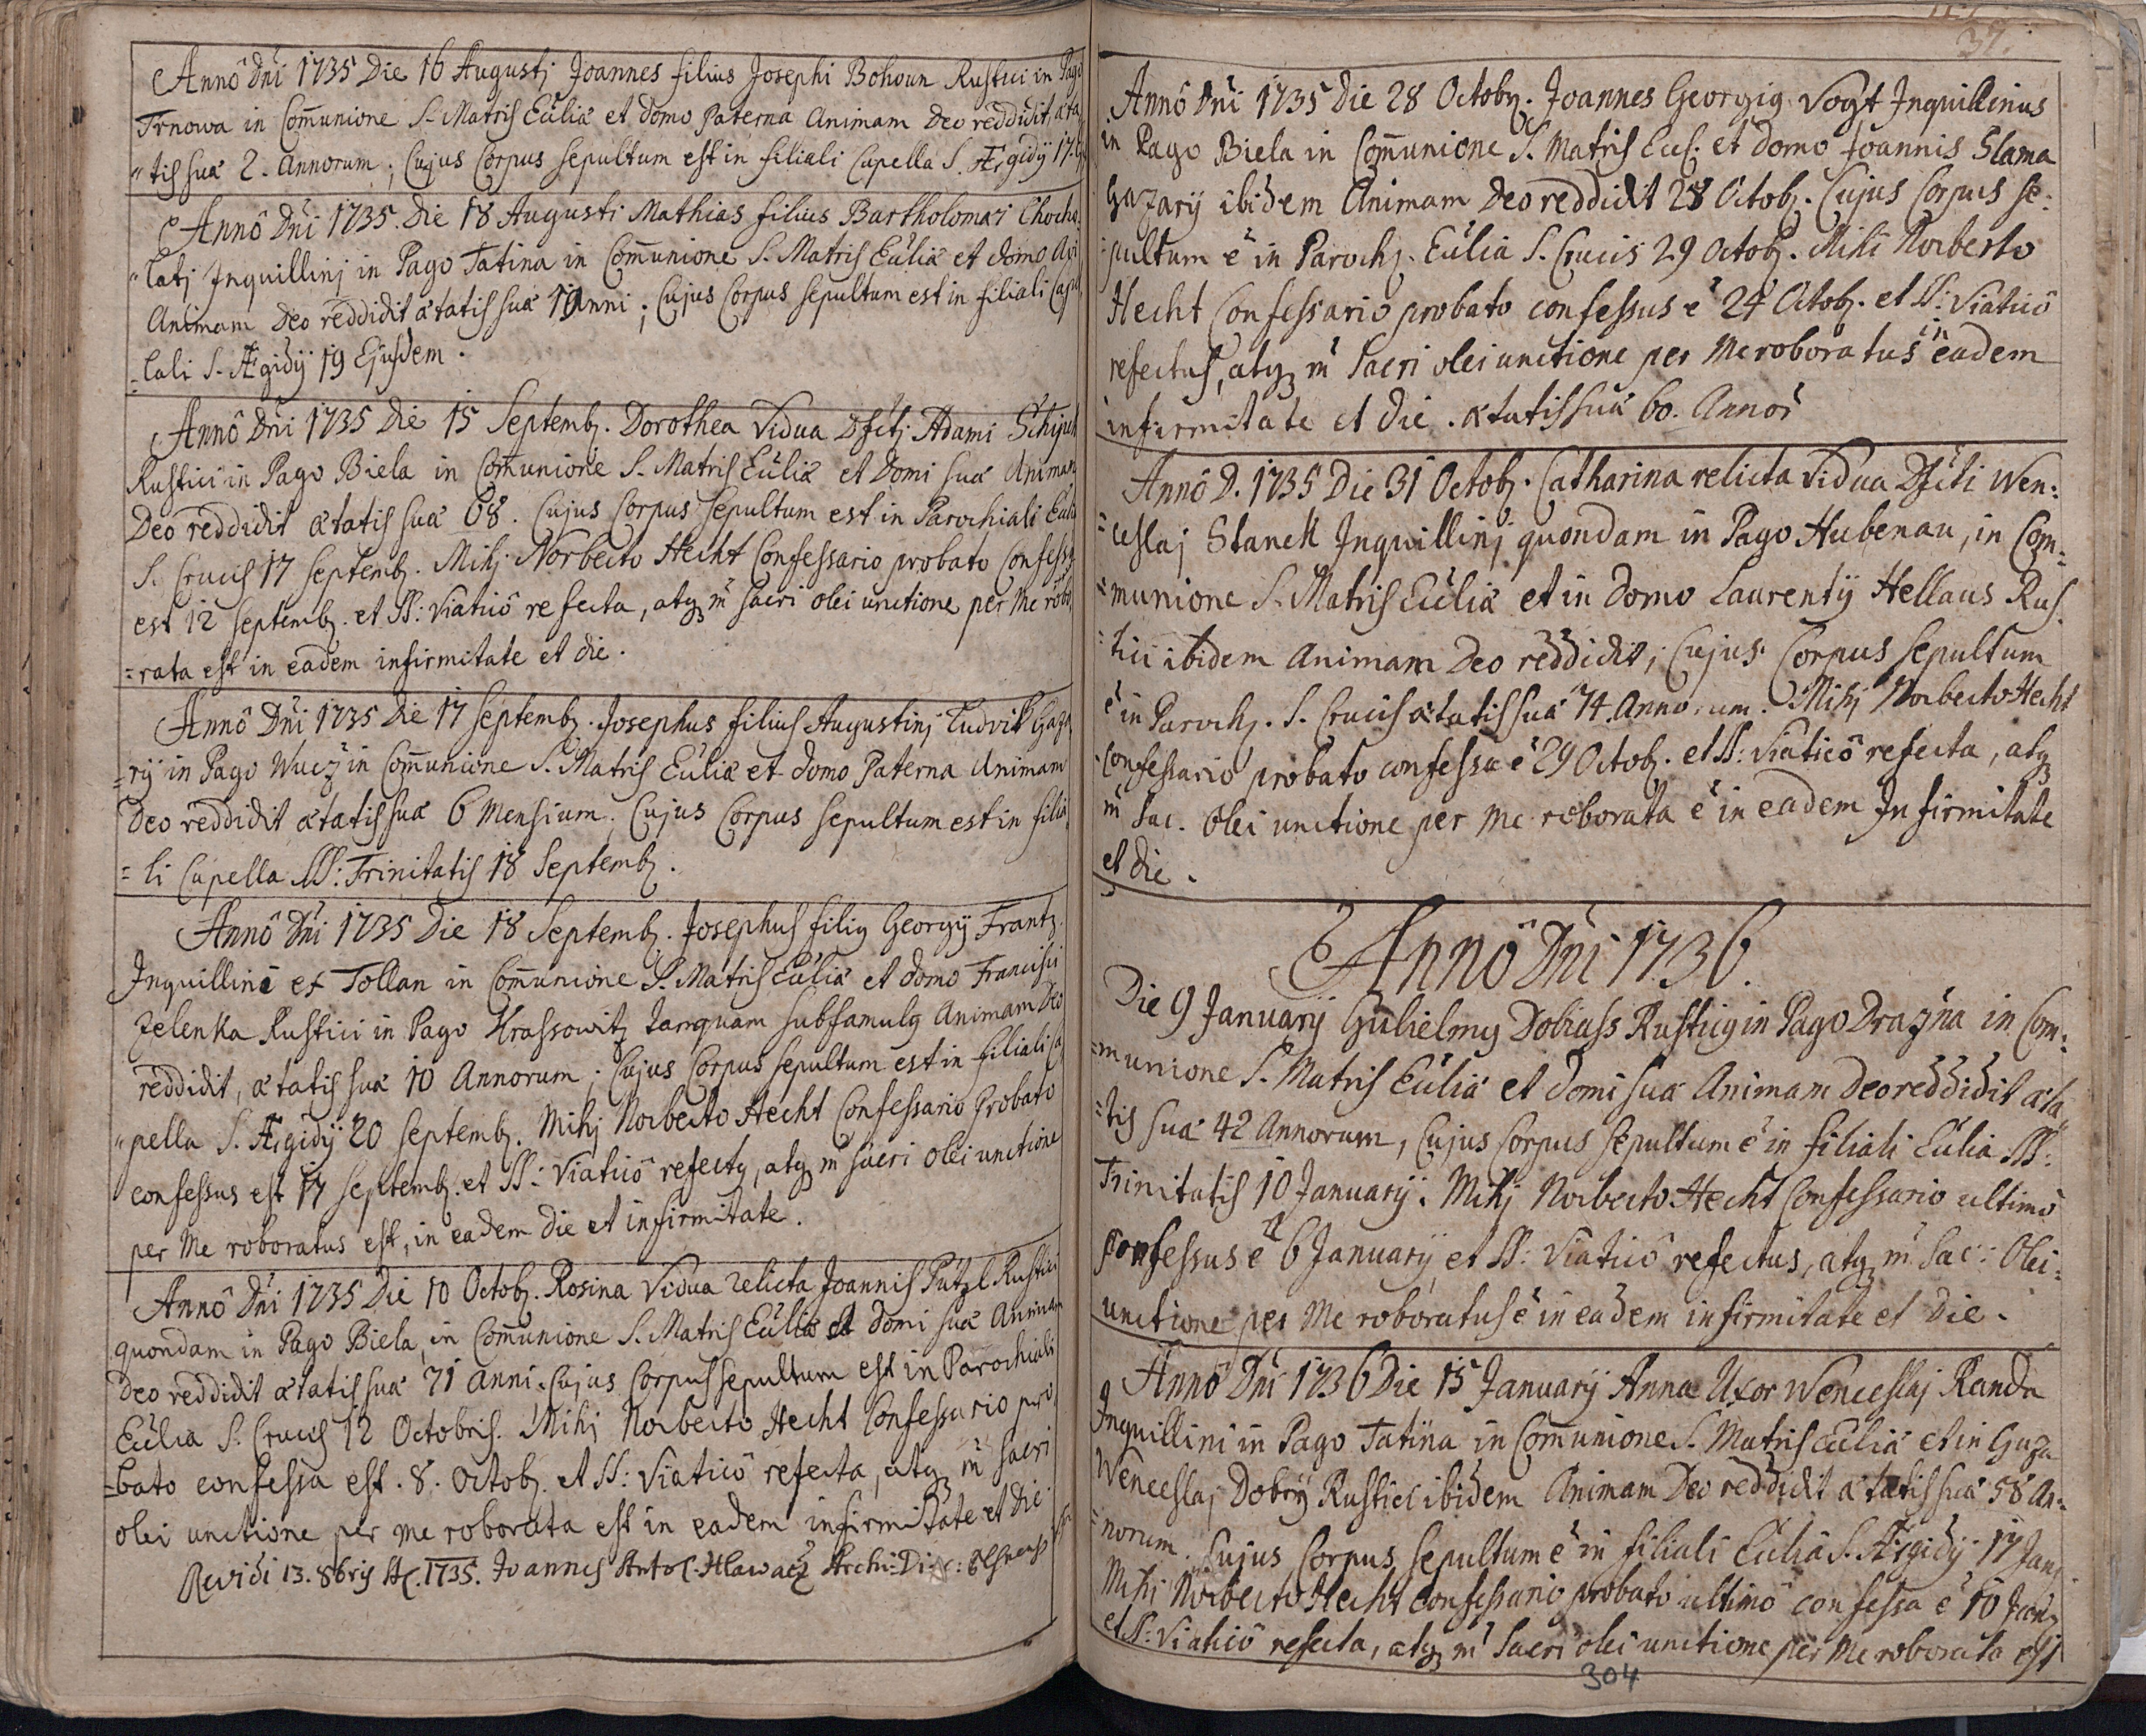 Annô Dni 1735 Die 16 Augustj Joannes filius Josephi Bohoun Rustici in Pago
Trnowa in Com̄unione S. Matris Eccliæ et domo Paterna Animam Deo reddidit, æta
"tis suæ 2. Annorum; Cujus Corpus sepultum est in filiali Capella S. Ægidÿ 17.
Annô Dni 1735. Die 18 Augusti Mathias filius Bartholomæi Chocho
"latj Inquillinj in Pago Tatina in Com̄unione S. Matris Eccliæ et domo
Animam Deo reddidit ætatis suæ 1 Anni; Cujus Corpus sepultum est in filiali Capel
=lali S. Ægidÿ 19 Ejusdem.
Annô Dni 1735 Die 15 Septemb. Dorothea Vidua Dfctj Adami
Rustici in Pago Biela in Com̄unione S. Matris Eccliæ et Domi suæ Animam
Deo reddidit ætatis suæ 68. Cujus Corpus Sepultum est in Parochiali Eccli
S. Crucis 17 Septemb. Mihj Norberto Hecht Confessario probato Confess
est 12 Septemb. et SS: Viaticô refecta, atq m̄ sacri olei unctione per Me robo
=rata est in eadem infirmitate et die.
Annô Dni 1735 Die 17 Septemb. Josephus filius Augustinj Ludvik Gaza
=rÿ in Pago Wucz in Com̄unione S. Matris Eccliæ et domo Paterna Animam
Deo reddidit ætatis suæ 6 Mensium; Cujus Corpus sepultum est in filia
=li Capella SS: Trinitatis 18 Septemb.
Annô Dni 1735 Die 18 Septemb. Josephus filiq Georgÿ Frantz
Inquillini ex Tollan in Com̄unione S. Matris Eccliæ et domo Francisci
Zelenka Rustici in Pago Hrassowitz tanquam subfamulq Animam Deo
reddidit, ætatis suæ 10 Annorum; Cujus Corpus sepultum est in filiali Ca
"pella S. Ægidÿ 20 Septemb. Mihj Norberto Hecht Confessario Probato
confessus est 17 Septemb. et SS: Viaticô refectq, atq m̄ sacri olei unctione
per Me roboratus est, in eadem die et infirmitate.
Annô Dni 1735 Die 10 Octob. Rosina Vidua relicta Joannis Putzl Rustici
quondam in Pago Biela, in Com̄unione S. Matris Eccliæ et domi suæ Animam
Deo reddidit ætatis suæ 71 anni. Cujus Corpus sepultum est in Parochiali
Ecclia S. Crucis 12 Octobris. Mihj Norberto Hecht Confessario pro
=bato confessa est. 8. Octob. et SS: Viaticô refecta, atq m̄ sacri
olei unctione per me roborata est in eadem infirmitate et die
Revidi 13. 8bris A. 1735. Joannes Hlawacz Archi-Diac:
37.
Annô Dni 1735 Die 28 Octob. Joannes Georgiq Vogt Inquillinus
in Pago Biela in Com̄unione S. Matris Eccl. et domo Joannis Slama
Gazarÿ ibidem Animam Deo reddidit 28 Octob. Cujus Corpus se:
=pultum ē in Paroch. Ecclia S. Crucis 29 Octob. Mihi Norberto
Hecht Confessario probato confessus ē 24 Octob. et SS: Viaticô
refectus, atq m̄ Sacri olei unctione per Me roboratus in eadem
infirmitate et die. ætatis suæ 60. Annor
Annô D. 1735 Die 31 Octob. Catharina relicta Vidua Dfcti Wen:
=ceslaj Stanek Inquillinj quondam in Pago Hubenau, in Com:
=munione S. Matris Eccliæ et in domo Laurentÿ Hellaus Rus.
=tici ibidem Animam Deo reddidit; Cujus Corpus sepultum
ē in Paroch. S. Crucis ætatis suæ 74. Annorum. Mihj Norberto Hecht
confessario probato confessa ē 29 Octob. et SS: Viaticô refecta, atq
m̄ Sac. Olei unctione per Me roborata ē in eadem Infirmitate
et die.
Annô Dni 1736.
Die 9 Januarÿ Gulielmq Dobiass Rusticq in Pago Drazna in Com:
=munione S. Matris Eccliæ et domi suæ Animam Deo reddidit æta
=tis suæ 42 Annorum, Cujus Corpus sepultum ē in filiali Ecclia SS:
Trinitatis 10 Januarÿ. Mihj Norberto Hecht Confessario ultimô
Confessus ē 6 Januarÿ et SS: Viaticô refectus, atq m̄ Sac: Olei:
unctione per Me roboratus ē in eadem infirmitate et Die.
Annô Dni 1736 Die 15 Januarÿ Anna Uxor Wenceslaj Randa
Inquillini in Pago Tatina in Com̄unione S. Matris Eccliæ et in Gaza
Wenceslaj Dobrÿ Rustici ibidem Animam Deo reddidit ætatis suæ 58 An=
=norum. Cujus Corpus sepultum ē in filiali Ecclia S. Ægidÿ 17 Jan.
Mihi Norberto Hecht confessario probato ultimô confessa ē 10 Jan.
et SS: Viaticô refecta, atq m̄ Sacri olei unctione per Me roborata est
304